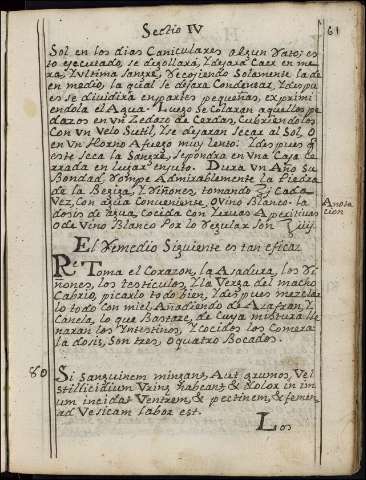 Sectio IV
61
Sol en los dias Caniculares algun Rato; es
to ejecutado, se degollará, Y dejará Caer en me
ra, Y ultima sangre, Recojiendo Solamente la de
en medio, la qual se dejara Condensar, Y des pu
es se dividirá en partes pequeñas, exprimi
endola el Agua. Luego se Colaran aquellos pe
dazos en un Zedazo de Cerdas, Cubriendolos
Con un Velo Sutil, Y se dejaran Secar al Sol, O
en Un Horno Afuego muy lento: Y des pues q
este Seca la Sangre, Se pondra en Una Caja Ce
rrada en lugar enjuto. Dura un Año Su
Bondad, Rompe Admirablemente la Piedra
de la Begiga, Y Riñones, tomando Cada
Vez, Con agua Conveniente, O Vino Blanco. la
Anota
cion
dosis de agua, Cocida Con Yervas Aperitivas
O de Vino Blanco Por lo Regular Son iiij.
El Remedio Siguiente es tan eficaz
Re. Toma el Corazon, la Asadura, los Ri
ñones, los testiculos, Y la Verga del macho
Cabrio, picarlo todo bien, Y des pues mezclar
lo todo Con miel Añadiendo de Azafran, Y
Canela, lo que Bastare, de Cuya mistura Lle
naran los Yntestinos, Y Cocidos los Comera.
la dosis, Son tres, O quatro Bocados.
80
Si sanguinem mingant, Aut grumos, Vel
stillicidium Urinæ habeant & dolor in im
um incidat Ventrem, & pectinem, & femin
ad Vesicam labor est.
Los